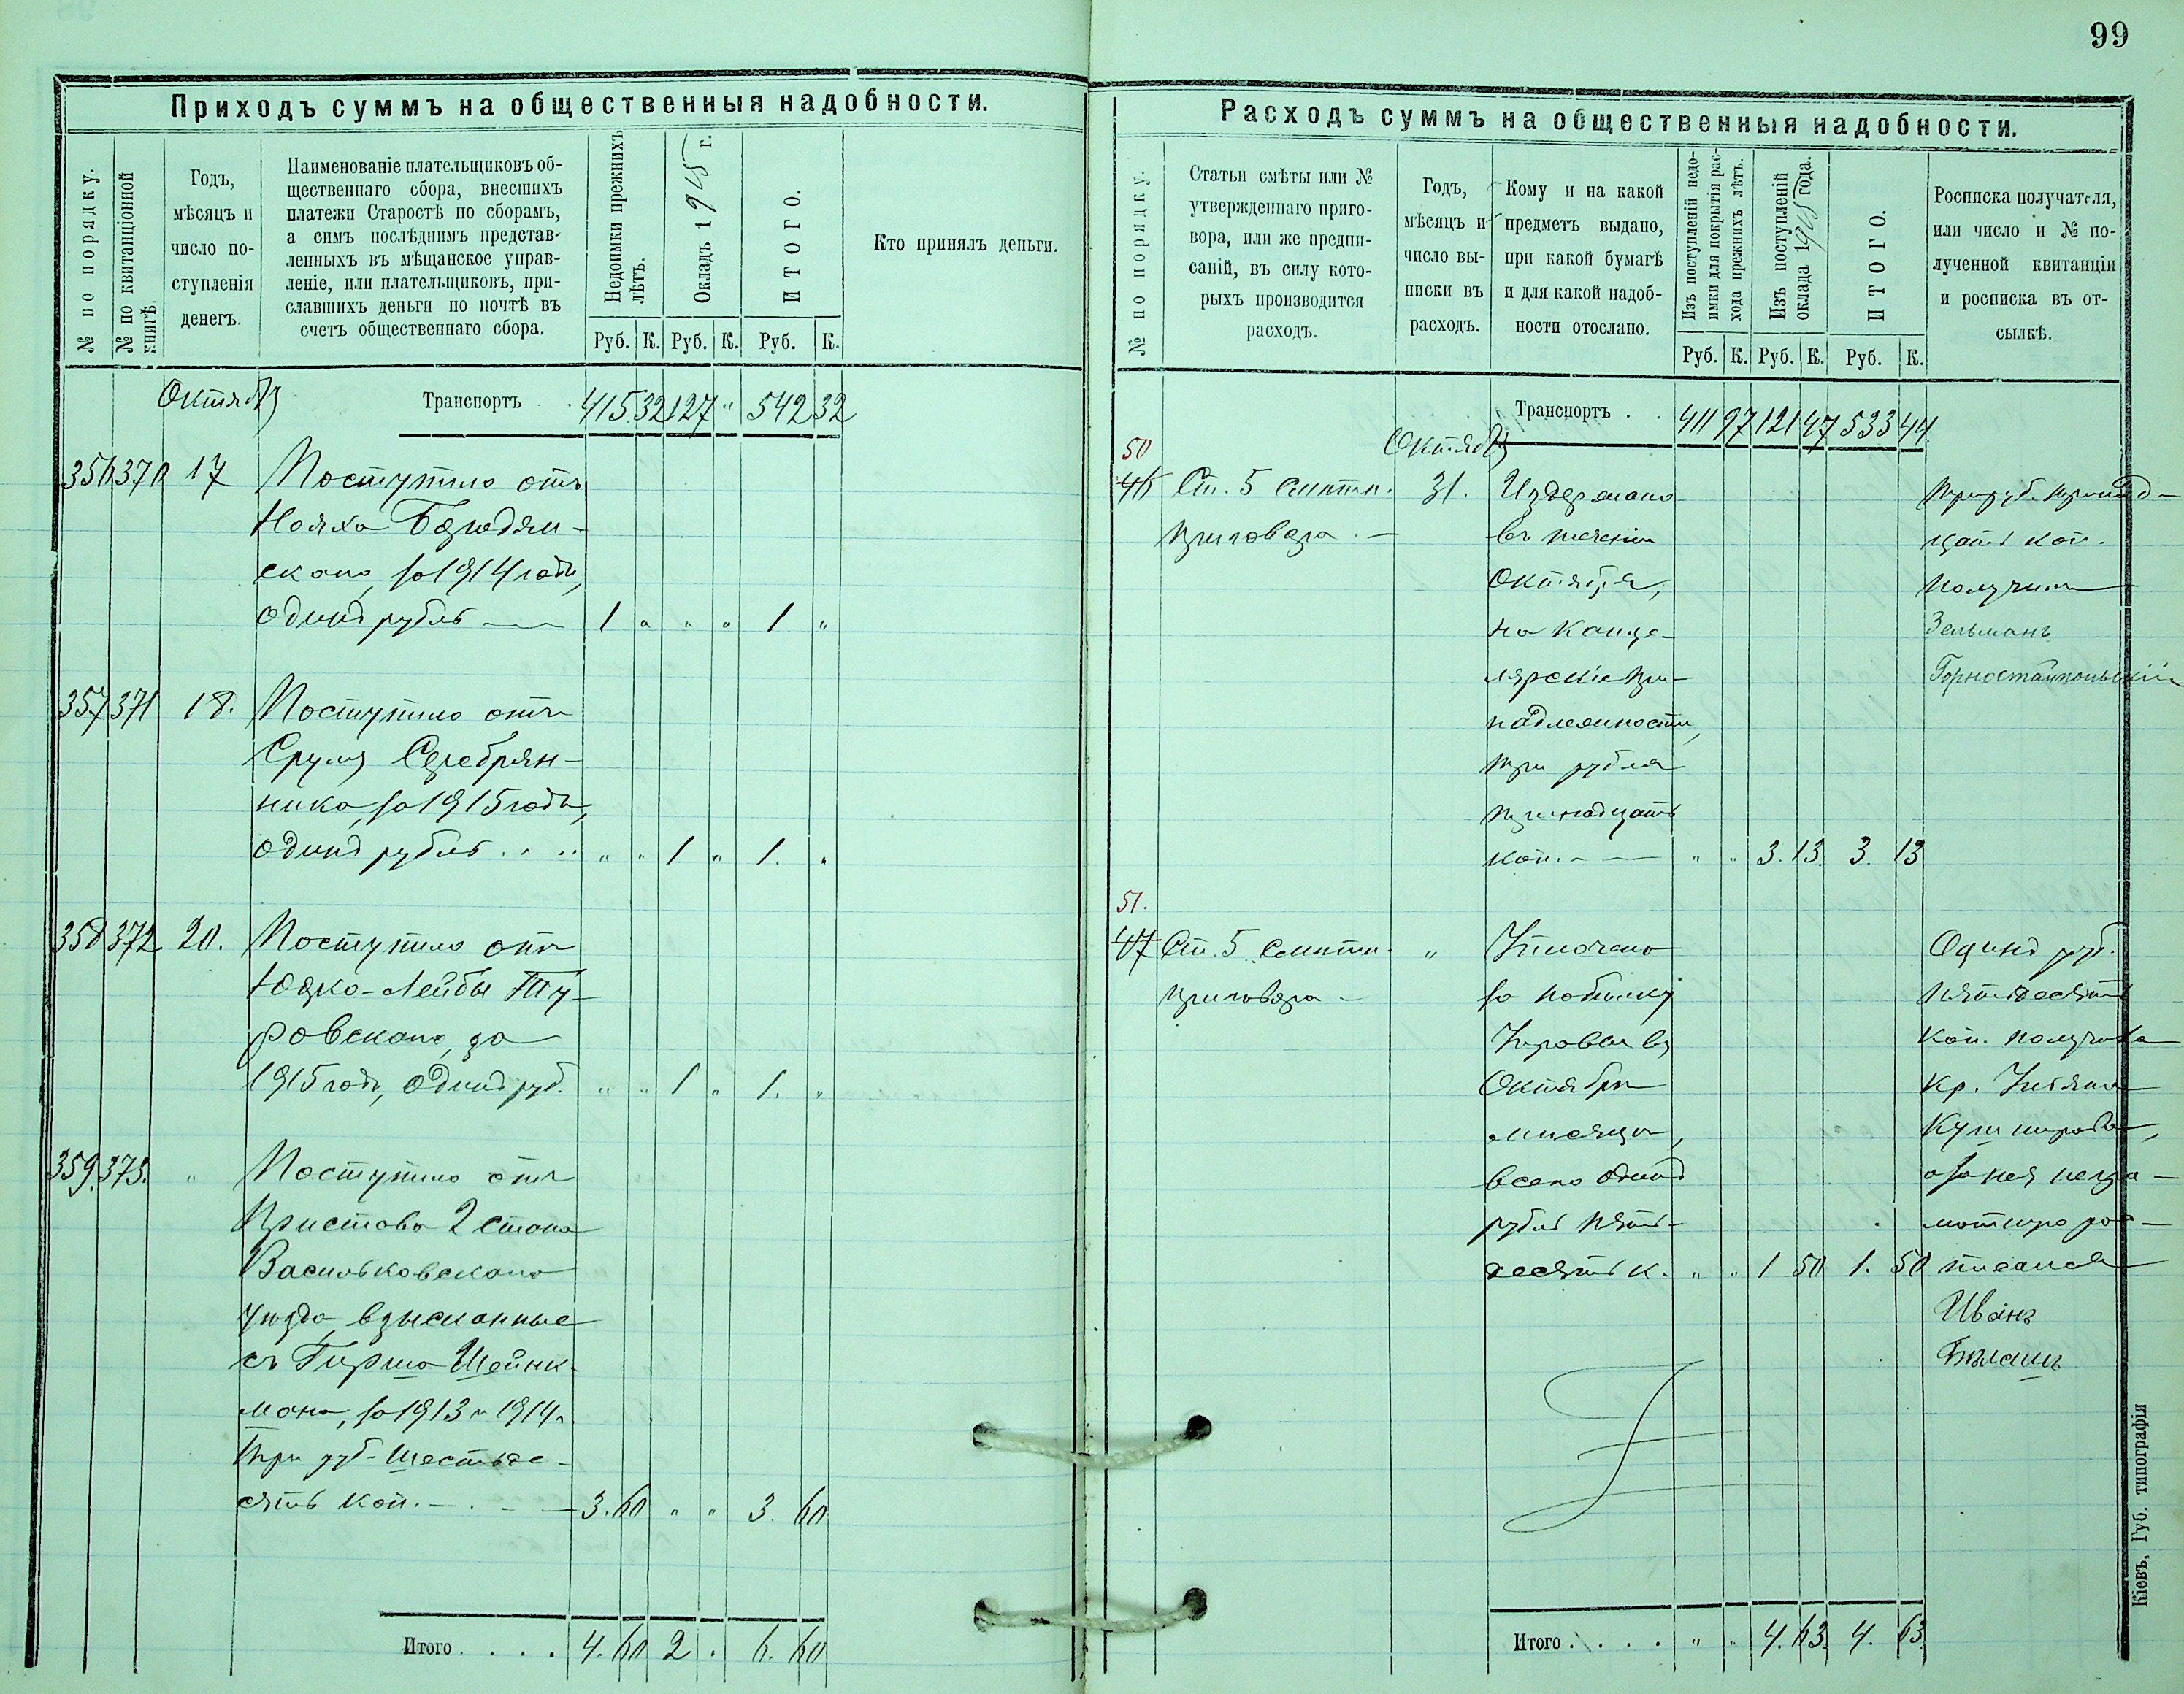 99
Приходъ суммъ на общественныя надобности.
№ по порядку.
№ по квитанціонной
книгѣ.
Годъ,
мѣсяцъ и
число по-
ступленія
денегъ.
Наименованіе плательщиковъ об-
щественнаго сбора, внесшихъ
платежи Старостѣ по сборамъ,
а симъ послѣднимъ представ-
ленныхъ въ мѣщанское управ-
леніе, или плательщиковъ, при-
славшихъ деньги по почтѣ въ
счетъ общественнаго сбора.
Недоимки прежнихъ
лѣтъ.
Окладъ 1915 г.
ИТОГО.
Кто принялъ деньги.
Руб. К. Руб. К. Руб. К.
Октябр
Транспортъ . . 415 32 127 " 542 32
356 370 17 Поступило отъ
Нояха
скаго, за 1914 годъ,
одинъ рубль — 1 " " " 1 "
357 371 18. Поступило отъ
Срумъ Серебрян-
ника, за 1915 годъ,
одинъ рубль . . . . " " 1 " 1. "
358 372 20. Поступило отъ
Юдко-Лейбы Ту-
ровскаго, за
1915 годъ, одинъ руб. " " 1 " 1. "
359. 373. " Поступило отъ
Пристава 2 стана
Васильковскаго
уѣзда, взысканные
съ Герша Шейнк-
мана, за 1913 и 1914 г.
три руб. шестьде-
сятъ коп. — . — — 3. 60 " " 3. 60
Итого . . . . 4. 60 2 . 6. 60
Расходъ суммъ на общественныя надобности.
№ по порядку.
Статьи смѣты или №
утвержденнаго приго-
вора, или же предпи-
саній, въ силу кото-
рыхъ производится
расходъ.
Годъ,
мѣсяцъ и
число вы-
писки въ
расходъ.
Кому и на какой
предметъ выдано,
при какой бумагѣ
и для какой надоб-
ности отослано.
Изъ поступленій недо-
имки для покрытія рас-
хода прежнихъ лѣтъ.
Изъ поступленій
оклада 1915 года.
ИТОГО.
Росписка получателя,
или число и № по-
лученной квитанціи
и росписка въ от-
сылкѣ.
Руб. К. Руб. К. Руб. К.
Транспортъ . . 411 97 121 47 533 44
Октябр
50
46 Ст. 5 смѣты. 31. Издержано
приговора. — въ теченіи
Октября,
на канце-
лярскіе при-
надлежности,
три рубля
тринадцать
коп. — — " " 3. 13. 3. 13
Три руб. тринад-
цать коп.
получилъ
Зельманъ
Горностайпольскій
51.
47 Ст. 5 смѣты. " Уплочено
приговора —
Октябрь
мѣсяцъ,
всего одинъ
рубль пять-
десятъ к. " " 1 50 1. 50
Одинъ руб.
пятьдесятъ
коп. получила
кр. Ульяна
а за нея негра-
мотную рос-
писался
Иванъ
Бѣлашъ
Итого . . . . " " 4. 63. 4. 63.
Кіевъ, Губ. типографія